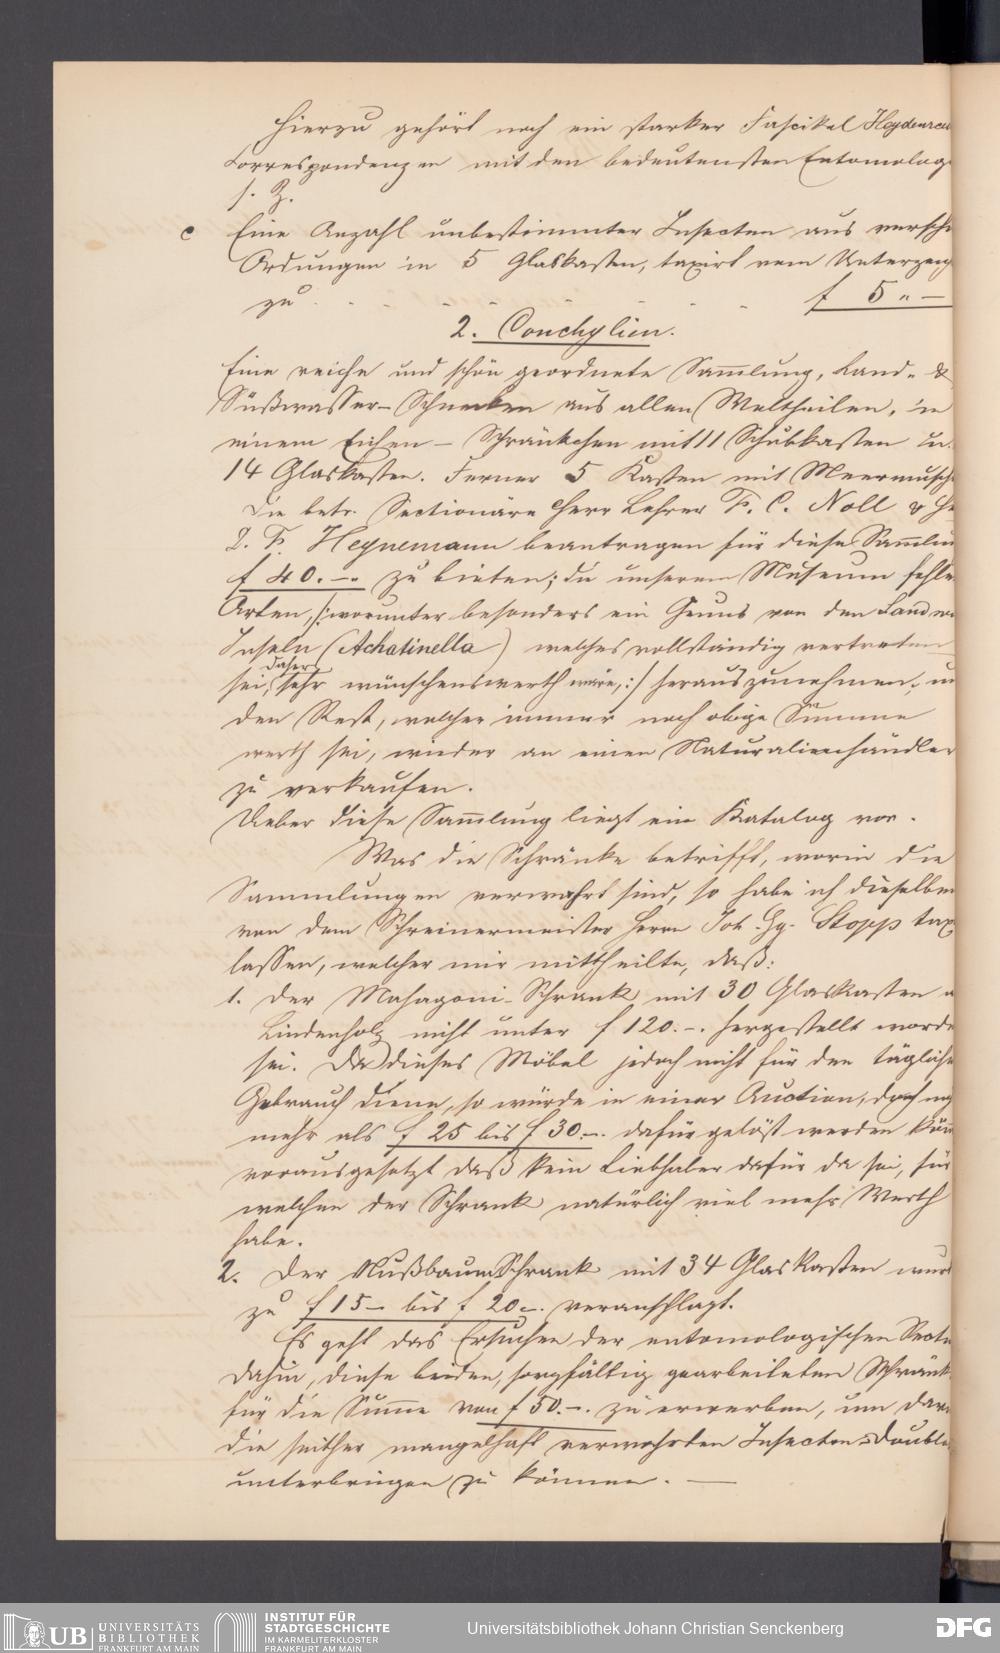 Hierzu gehört noch ein starker Fascikel Heydenrei
Correspondenzen mit den bedeutensten Entomolog
s. Z.
c Eine Anzahl unbestimmter Insecten aus versch
Ordnungen in 5 Glaskasten, taxirt vom Unterzeig
zu . . . . . f 5 „ —
2. Conchylien.
Eine reiche und schön geordnete Sam̄lung, Land- &
Süßwasser-Schnecken aus allen Welttheilen, in
einem Eichen-Schränkchen mit 11 Schubkasten u.
14 Glaskasten. Ferner 5 Kasten mit Meermusch
Die betr. Sectionäre Herr Lehrer F. C. Noll & H
D. F. Heynemann beantragen für diese Sam̄lun
f 40.—. zu bieten; da unserem Museum fehle
Arten, /:worunter besonders ein Genus von den Sandw
Inseln (Achatinella) welches vollständig vertreten
sei, daher sehr wünschenswerth wäre,:/ herauszunehmen, u
den Rest, welcher immer noch obige Summe
werth sei, wieder an einen Naturalienhändler
zu verkaufen.
Ueber diese Sam̄lung liegt ein Katalog vor.
Was die Schränke betrifft, worin die
Sammlungen verwahrt sind, so habe ich dieselben
von dem Schreinermeister Herrn Joh. Gg. Stopp tax
lassen, welcher mir mittheilte, daß:
1. Der Mahagoni-Schrank mit 30 Glaskasten a
Lindenholz nicht unter f 120.—. hergestellt worde
sei. Da dieses Möbel jedoch nicht für den täglich
Gebrauch diene, so würde in einer Auction, doch n
mehr als f 25 bis f 30.—. dafür gelöst werden kön
vorausgesetzt daß kein Liebhaber dafür da sei, für
welchen der Schrank natürlich viel mehr Werth
habe.
2. Der Nußbaum Schrank mit 34 Glaskasten wur
zu f 15— bis f 20—. veranschlagt.
Es geht das Ersuchen der entomologischen Secti
dahin, diese beiden, sorgfältig gearbeiteten Schränk
für die Sum̄e von f 50.—. zu erwerben, um dar
die seither mangelhaft verwahrten Insecten-Double
unterbringen zu können. —
UB UNIVERSITÄTS
BIBLIOTHEK
FRANKFURT AM MAIN
INSTITUT FÜR
STADTGESCHICHTE
IM KARMELITERKLOSTER
FRANKFURT AM MAIN
Universitätsbibliothek Johann Christian Senckenberg
DFG